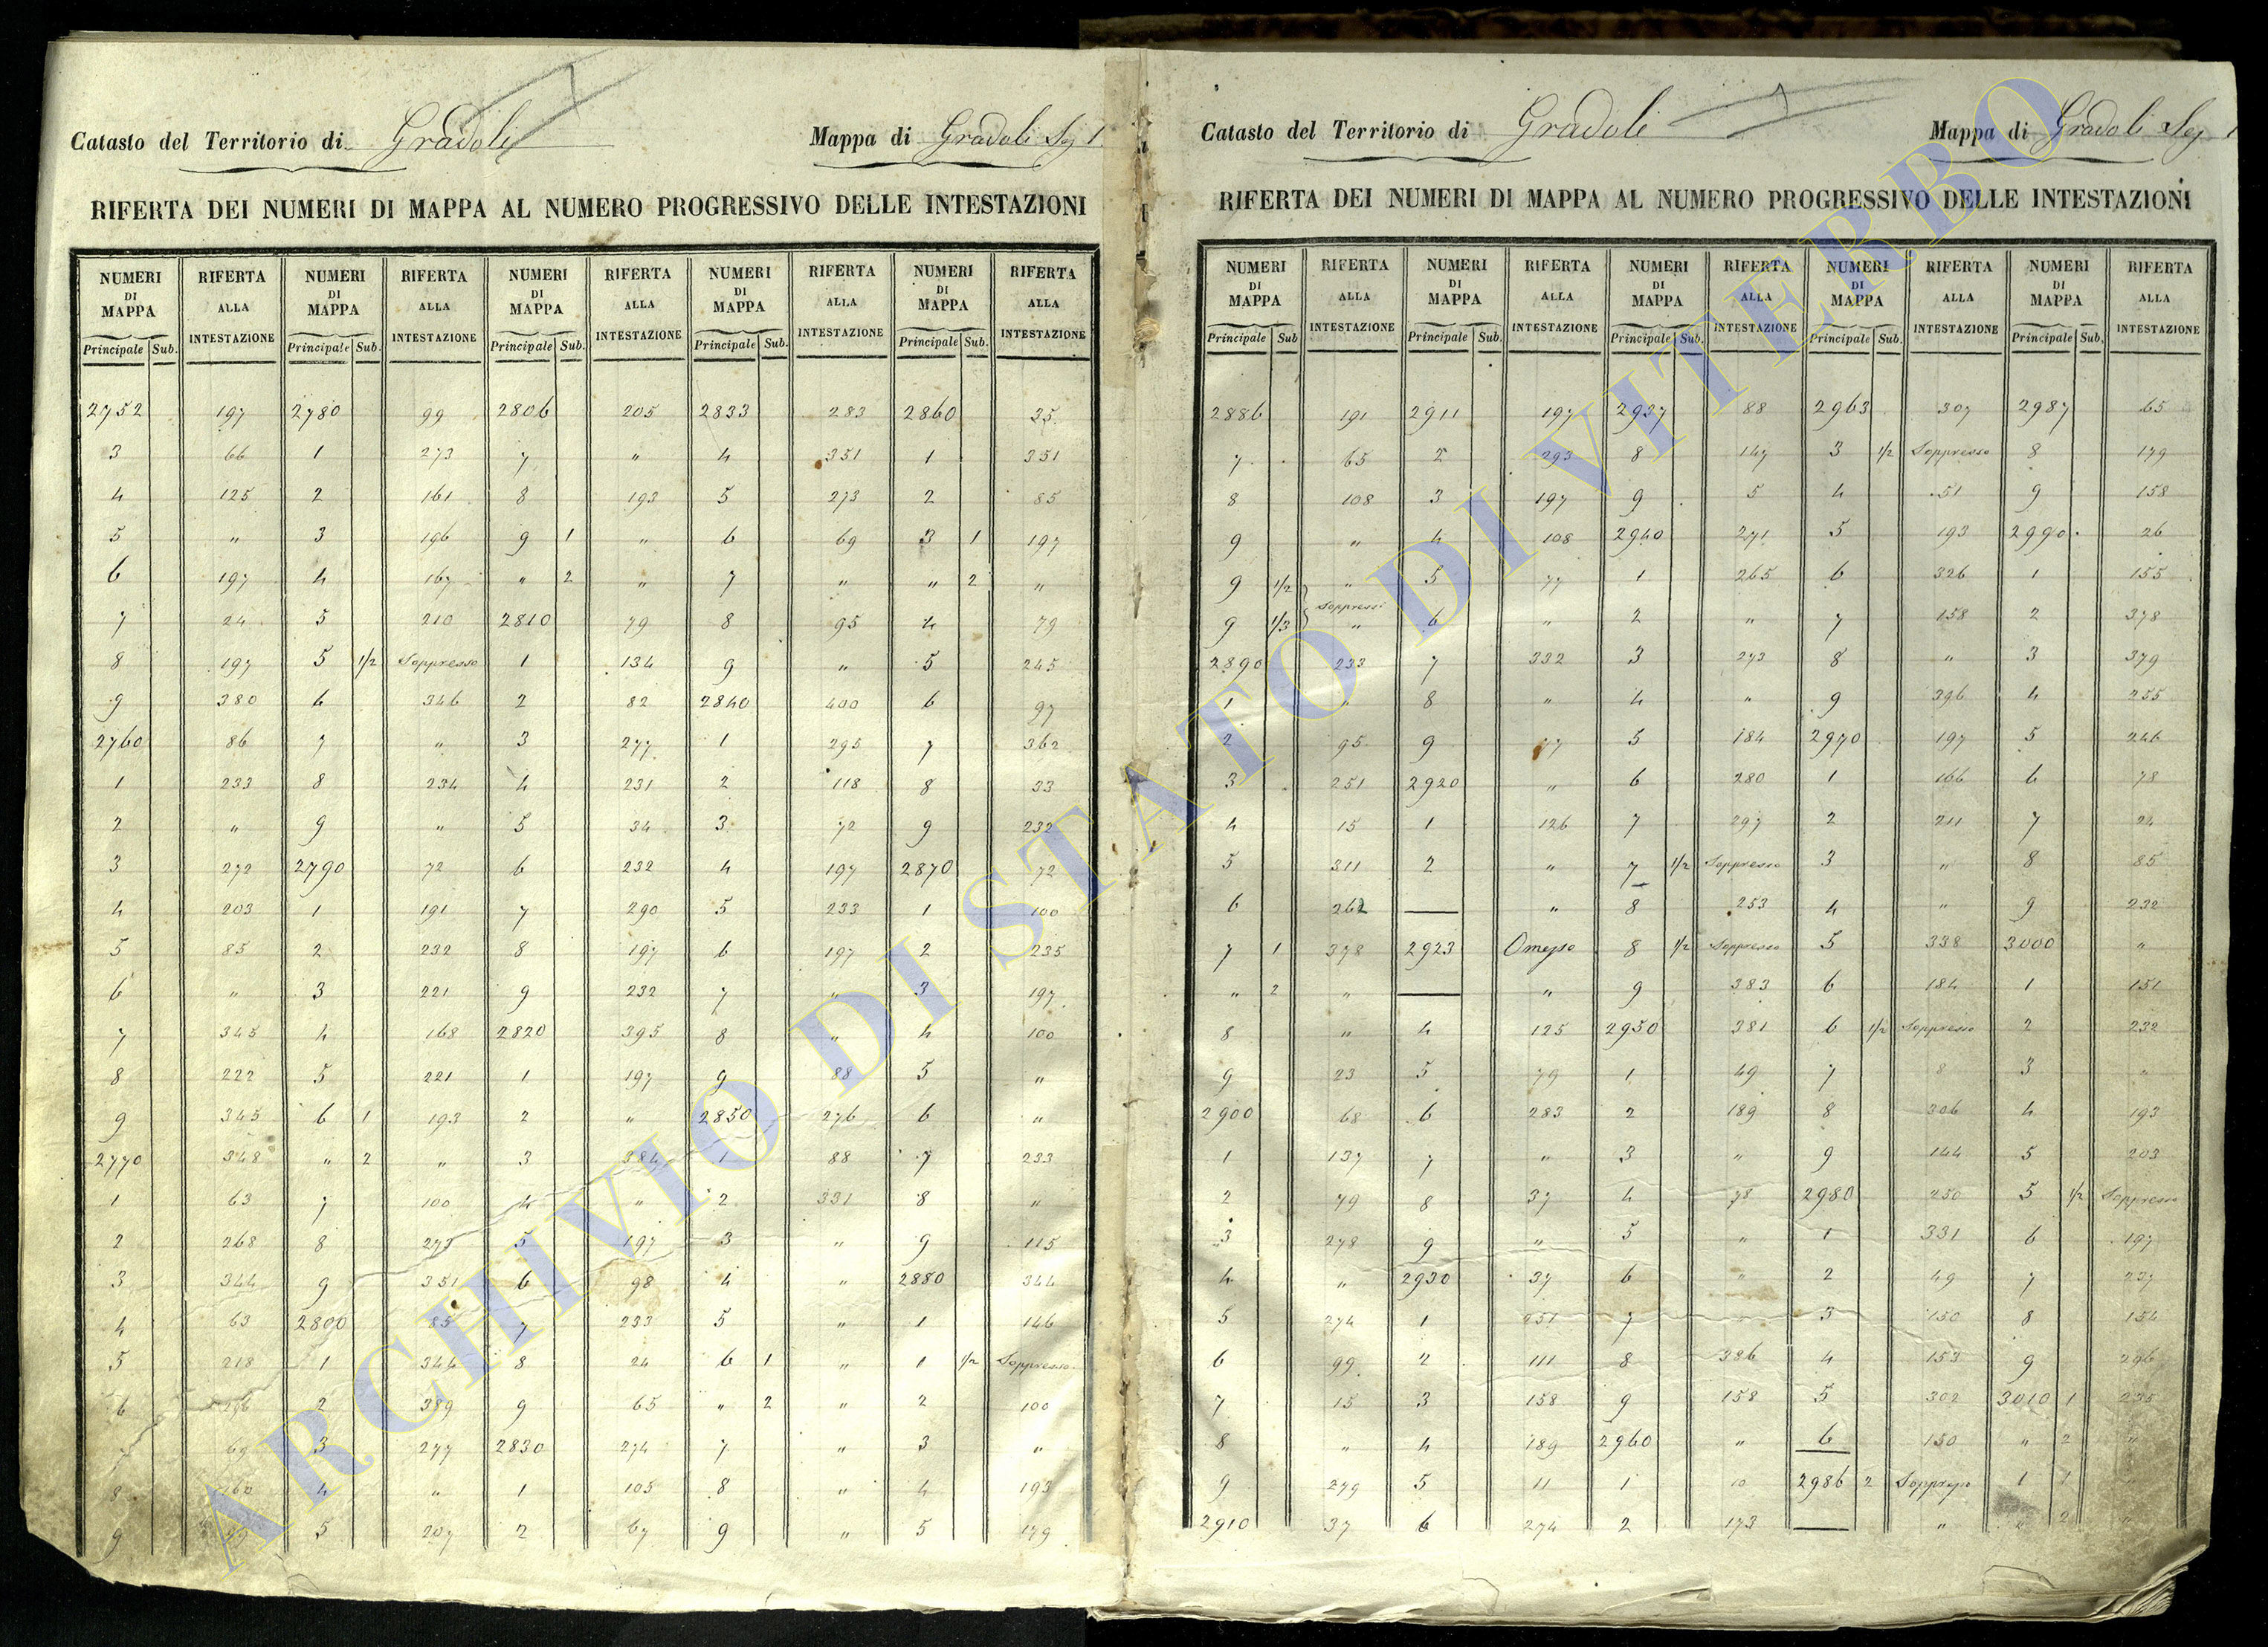 Catasto del Territorio di Gradoli Mappa di Gradoli Sez 1
RIFERTA DEI NUMERI DI MAPPA AL NUMERO PROGRESSIVO DELLE INTESTAZIONI
NUMERI DI MAPPA RIFERTA ALLA INTESTAZIONE NUMERI DI MAPPA RIFERTA ALLA INTESTAZIONE NUMERI DI MAPPA RIFERTA ALLA INTESTAZIONE NUMERI DI MAPPA RIFERTA ALLA INTESTAZIONE NUMERI DI MAPPA RIFERTA ALLA INTESTAZIONE
Principale Sub. Principale Sub. Principale Sub. Principale Sub. Principale Sub.
2752 197 2780 99 2806 205 2833 283 2860 35
3 66 1 273 7 " 4 351 1 351
4 125 2 161 8 193 5 273 2 85
5 " 3 196 9 1 " 6 69 3 1 197
6 197 4 167 " 2 " 7 " " 2 "
7 24 5 210 2810 79 8 95 4 79
8 197 5 1/2 Soppresso 1 134 9 " 5 245
9 380 6 346 2 82 2840 400 6 97
2760 86 7 " 3 277 1 295 7 362
1 233 8 234 4 231 2 118 8 33
2 " 9 " 5 34 3 72 9 232
3 272 2790 72 6 232 4 197 2870 72
4 203 1 191 7 290 5 233 1 100
5 85 2 232 8 197 6 197 2 235
6 " 3 221 9 232 7 " 3 197
7 345 4 168 2820 395 8 " 4 100
8 222 5 221 1 197 9 88 5 "
9 345 6 1 193 2 " 2850 276 6 "
2770 348 " 2 " 3 384 1 88 7 233
1 63 7 100 4 " 2 331 8 "
2 268 8 273 5 197 3 " 9 115
3 344 9 351 6 98 4 " 2880 344
4 63 2800 85 7 233 5 " 1 146
5 218 1 344 8 24 6 1 " 1 1/2 Soppresso
6 2 389 9 65 " 2 " 2 100
7 69 3 277 2830 274 7 " 3 "
8 160 4 " 1 105 8 " 4 193
9 5 207 2 67 9 " 5 179
Catasto del Territorio di Gradoli Mappa di Gradoli Sez 1
RIFERTA DEI NUMERI DI MAPPA AL NUMERO PROGRESSIVO DELLE INTESTAZIONI
NUMERI DI MAPPA RIFERTA ALLA INTESTAZIONE NUMERI DI MAPPA RIFERTA ALLA INTESTAZIONE NUMERI DI MAPPA RIFERTA ALLA INTESTAZIONE NUMERI DI MAPPA RIFERTA ALLA INTESTAZIONE NUMERI DI MAPPA RIFERTA ALLA INTESTAZIONE
Principale Sub Principale Sub. Principale Sub. Principale Sub. Principale Sub.
2886 191 2911 197 2937 88 2963 307 2987 65
7 65 2 293 8 147 3 1/2 Soppresso 8 179
8 108 3 197 9 5 4 51 9 158
9 " 4 108 2940 271 5 193 2990 26
9 1/2 " 5 77 1 265 6 326 1 155
9 1/3 Soppressi " 6 " 2 " 7 158 2 378
2890 233 7 332 3 273 8 " 3 379
1 " 8 " 4 " 9 396 4 255
2 95 9 77 5 184 2970 197 5 246
3 251 2920 " 6 280 1 166 6 78
4 15 1 126 7 297 2 211 7 24
5 311 2 " 7 1/2 Soppresso 3 " 8 85
6 262 — " 8 253 4 " 9 232
7 1 378 2923 Omesso 8 1/2 Soppresso 5 338 3000 "
" 2 " — " 9 383 6 184 1 151
8 " 4 125 2950 381 6 1/2 Soppresso 2 232
9 23 5 79 1 49 7 8 3 "
2900 68 6 283 2 189 8 306 4 193
1 137 7 " 3 " 9 144 5 203
2 79 8 37 4 78 2980 250 5 1/2 Soppresso
3 278 9 " 5 " 1 331 6 197
4 " 2930 37 6 " 2 49 7 237
5 274 1 251 7 " 3 150 8 154
6 99 2 111 8 386 4 153 9 296
7 15 3 158 9 158 5 302 3010 1 235
8 " 4 189 2960 " 6 150 " 2 "
9 279 5 11 1 10 2986 2 Soppresso 1 1 "
2910 37 6 274 2 173 — " " 2 "
ARCHIVIO DI STATO DI VITERBO